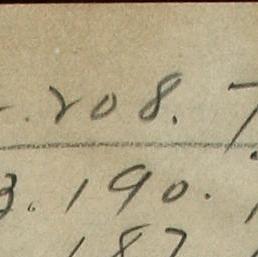 208. 7
3. 190.
187